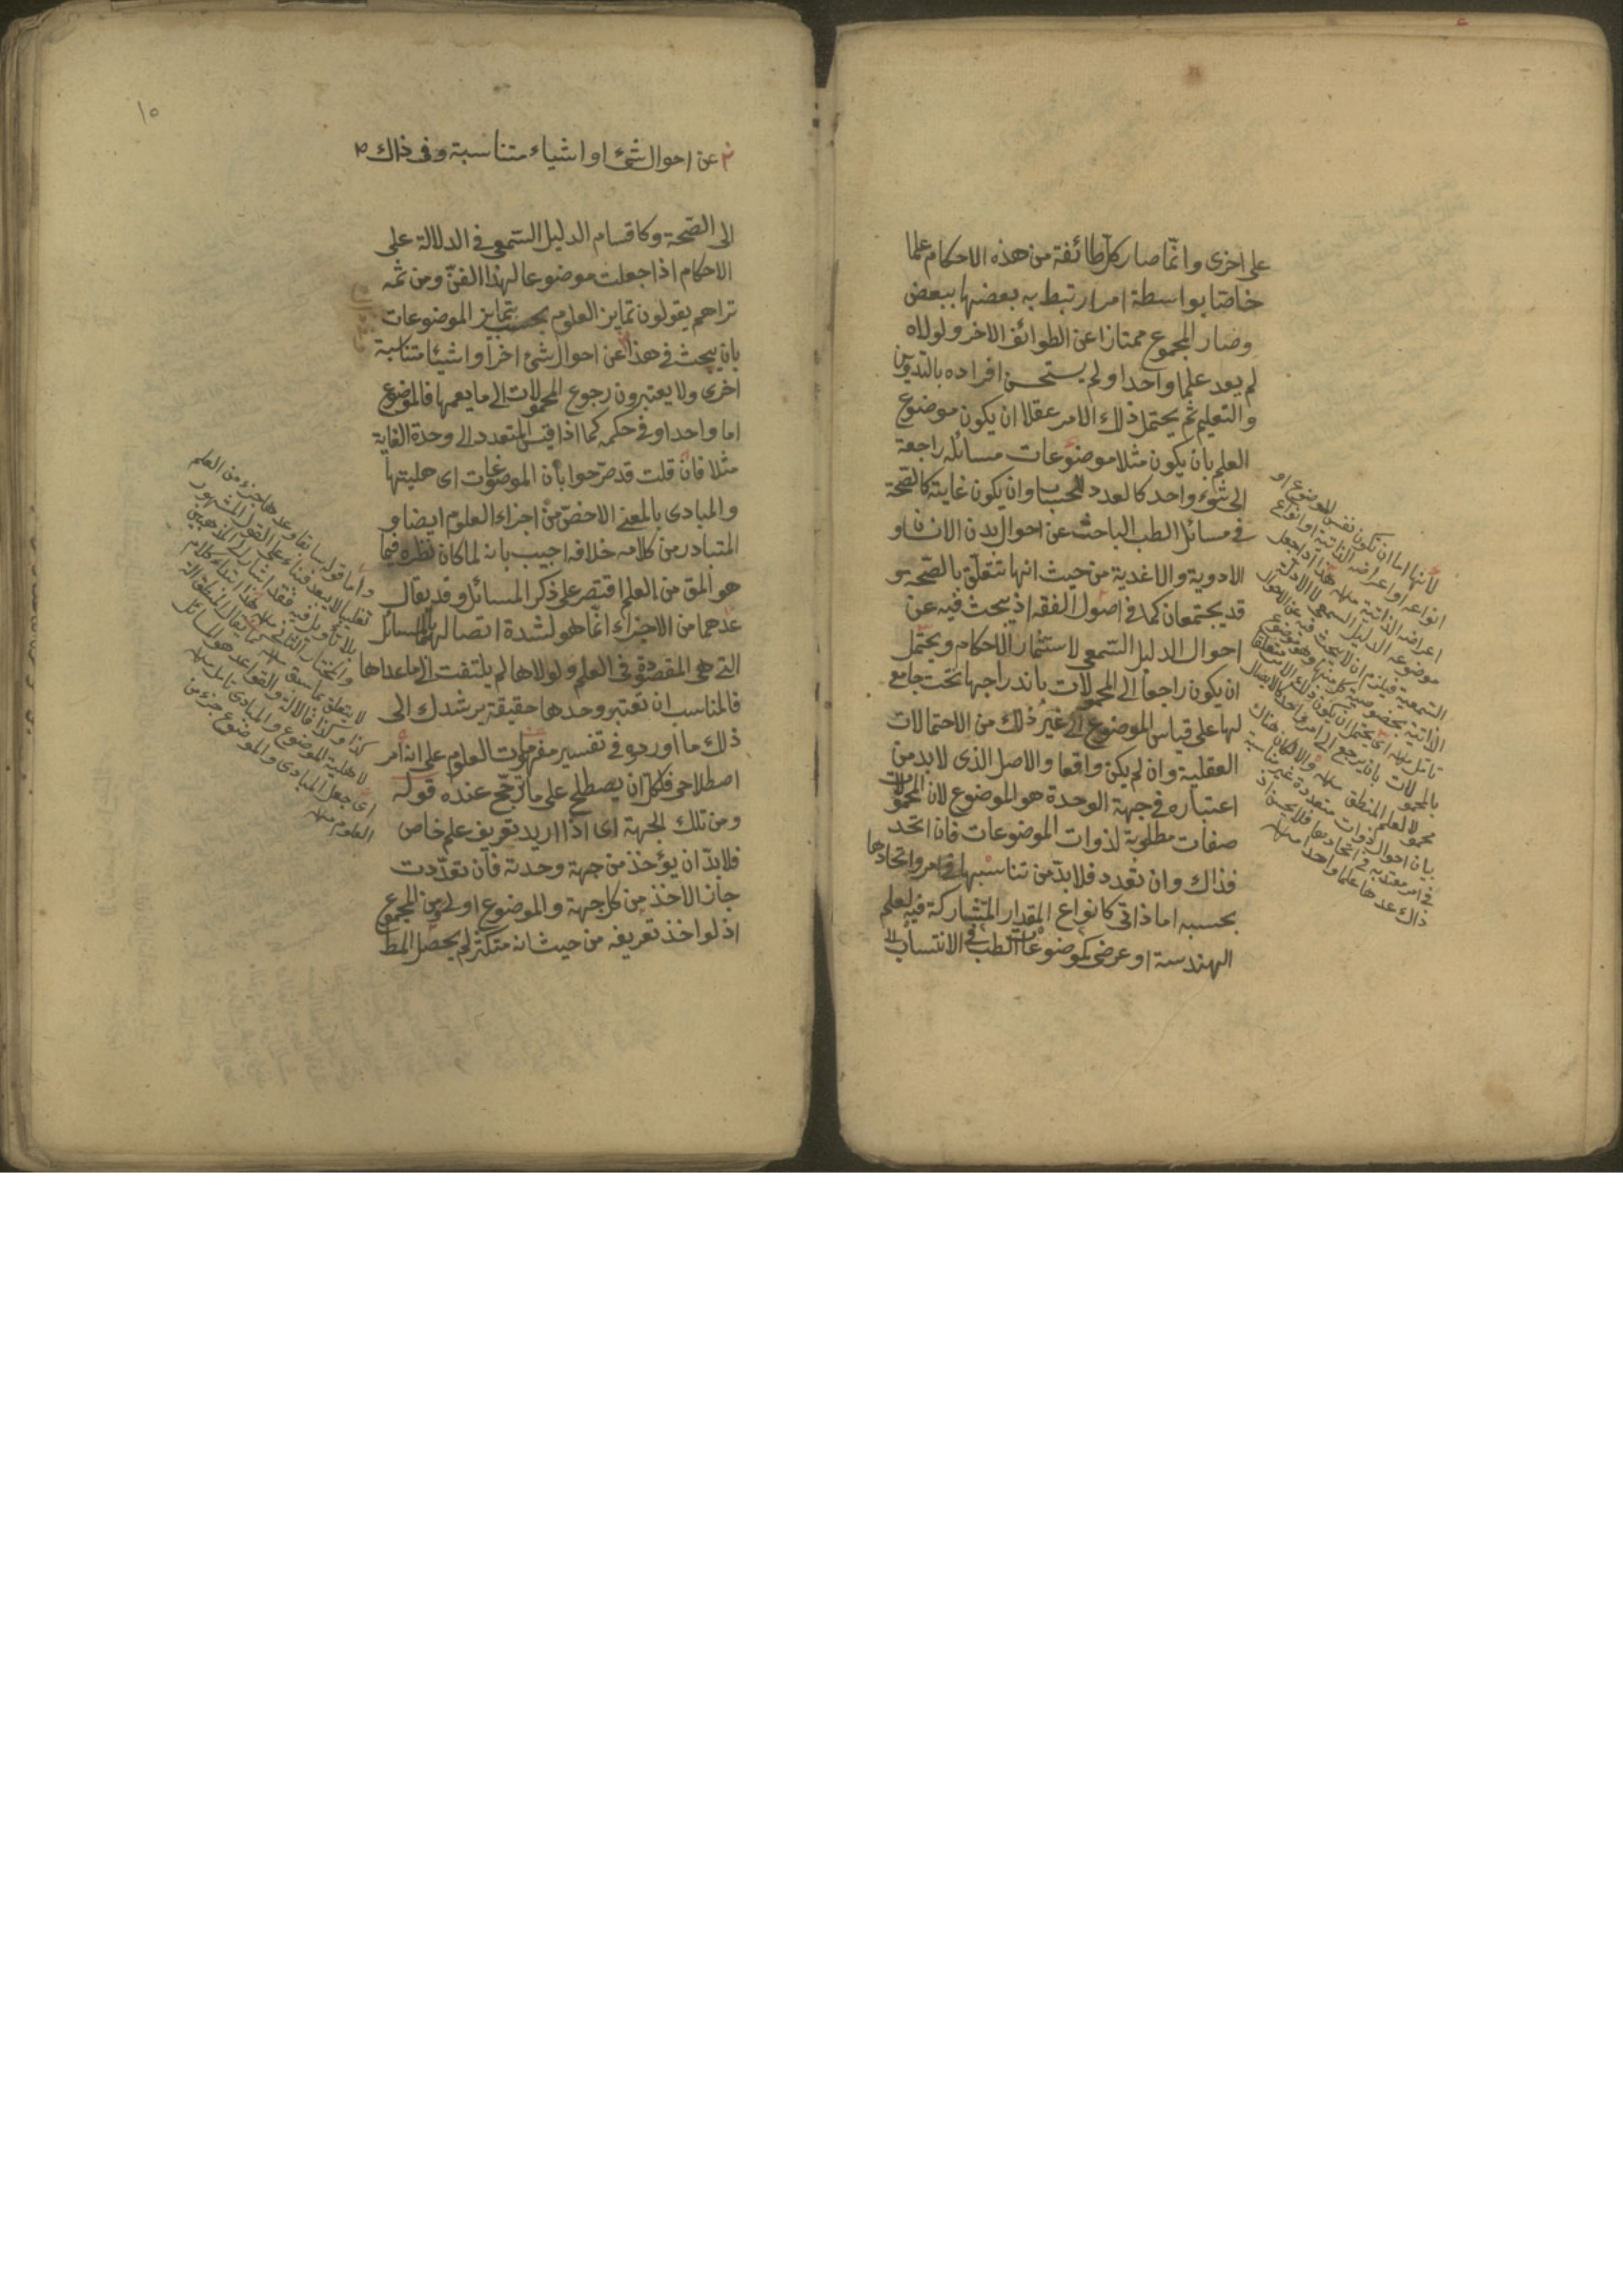 على اخرى وانّما صار كلّ طائفة من هذه الاحكام علما
خاصّا بواسطة امر ارتبط به بعضها ببعض
وصار المجموع ممتازا عن الطوائف الاخر ولولاه
لم يعد علما واحدا ولم يستحسن افراده بالتدوين
والتعليم ثم يحتمل ذلك الامر عقلا ان يكون موضوع
العلم بان يكون مثلا موضوعات مسائله راجعة
الى شىء واحد كالعدد للحساب وان يكون غايته كالصّحة
فى مسائل الطب الباحث عن احوال بدن الانسان و
الادوية والاغدية من حيث انها تتعلّق بالصّحة و
قد يجتمعان كما فى اصول الفقه اذ يبحث فيه عن
احوال الدليل السّمعى لاستثمار الاحكام ويحتمل
ان يكون راجعا الى المحمولات باندراجها تحت جامع
لها على قياس الموضوع الى غير ذلك من الاحتمالات
العقلية وان لم يكن واقعا والاصل الذى لابد من
اعتباره فى جهة الوحدة هو الموضوع لان المحمولات
صفات مطلوبة لذوات الموضوعات فان اتحد
فذاك وان تعدد فلابدّ من تناسبها فى امر واتحادها
بحسبه اما ذاتى كانواع المقدار المتشاركة فيه لعلم
الهندسة او عرضى كموضوعات الطب فى الانتساب
لانها اما ان تكون نفس الموضوع او
انواعه او اعراضه الذاتية او انواع
اعراضه الذاتية منه هذا اذا جعل
موضوعه الدليل السمعى لا الادلة
السمعية فيلزم ان لا يبحث فيه عن الاحوال
تأمل منه اى يحتمل ان يكون ذلك الامر متعلقا
بالمحمولات بان يرجع الى امر واحد كالايصال
محمولا لعلم المنطق منه والا لكان هناك
بيان احوال ذوات متعددة غير متناسبة
فى امر معتد به فى اتحادها فلا يحسن اذ
ذاك عدها علما واحدا منه
١٥
عن احوال شىء او اشياء متناسبة وفى ذاك
الى الصّحة وكاقسام الدليل السّمعى فى الدلالة على
الاحكام اذا جعلت موضوعا لهذا الفنّ ومن ثمه
تراهم يقولون تمايز العلوم بحسب تمايز الموضوعات
بان يبحث فى هذا عن احوال شىء اخر او اشيئا متناسبة
اخرى ولا يعتبرون رجوع المحمولات الى ما يعمها فالموضوع
اما واحد او فى حكمه كما اذا قيس المتعدد الى وحدة الغاية
مثلا فان قلت قد صرّحوا بأن الموضوعات اى هليتها
والمبادى بالمعنى الاخصّ من اجزاء العلوم ايضا و
المتبادر من كلامه خلافه اجيب بانه لما كان نظره فيما
هو المق من العلم اقتصر على ذكر المسائل وقد يقال
عدهما من الاجزاء انّما هو لشدة اتصالهما بالمسائل
التى هى المقصودة فى العلم ولولاها لم يلتفت الى ما عداها
فالمناسب ان تعتبر وحدها حقيقة يرشدك الى
ذلك ما اورده فى تفسير مفهومات العلوم على انه امر
اصطلاحى فلكلّ ان يصطلح على ما ترجّح عنده قوله
ومن تلك الجهة اى اذا اريد تعريف علم خاص
فلابدّ ان يؤخذ من جهة وحدته فان تعدّدت
جاز الاخذ من كل جهة والموضوع اولى ومن المجموع
اذ لو اخذ تعريفه من حيث انه متكثر لم يحصل المط
واما قوله سابقا وعدها جزء من العلم
تغليبا لا يبعد فبناء على القول المشهور
بلا تأويل فيه فقد اشار الى المذهبين
واختار الثانى منه هذا ابتداء كلام
لا يتعلق بما سبق منه كما يقال المنطق آلة
كذا وكذا فالالة والقواعد هو المسائل
لا هلية الموضوع والمبادى تأمل منه
اى جعل المبادى والموضوع جزء من
العلوم منه